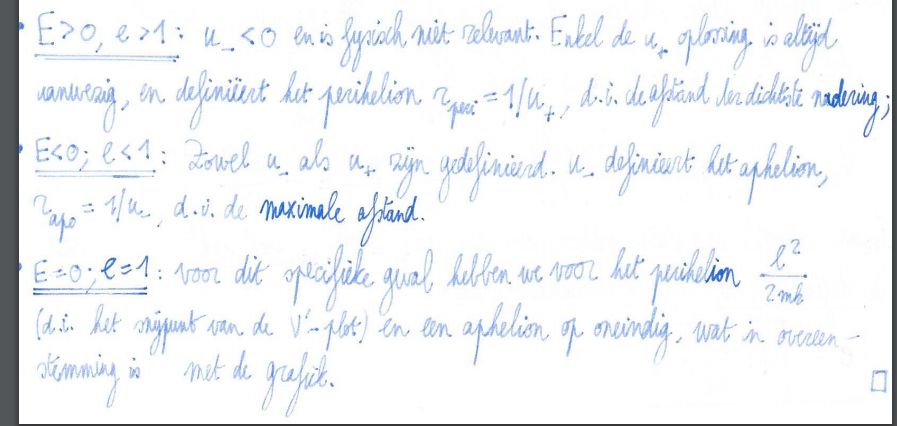 • E>0, e>1: u_- <0 en is fysisch niet relevant. Enkel de u_+ oplossing is altijd
aanwezig, en definiëert het perihelion r_peri = 1/u_+, d.i. de afstand der dichtste nadering;
• E<0; e<1: Zowel u_- als u_+ zijn gedefinieerd. u_- definieert het aphelion,
r_apo = 1/u_-, d.i. de maximale afstand.
• E=0; e=1: voor dit specifieke geval hebben we voor het perihelion ℓ²/2mk
(d.i. het snijpunt van de V'-plot) en een aphelion op oneindig, wat in overeen-
stemming is met de grafiek. □